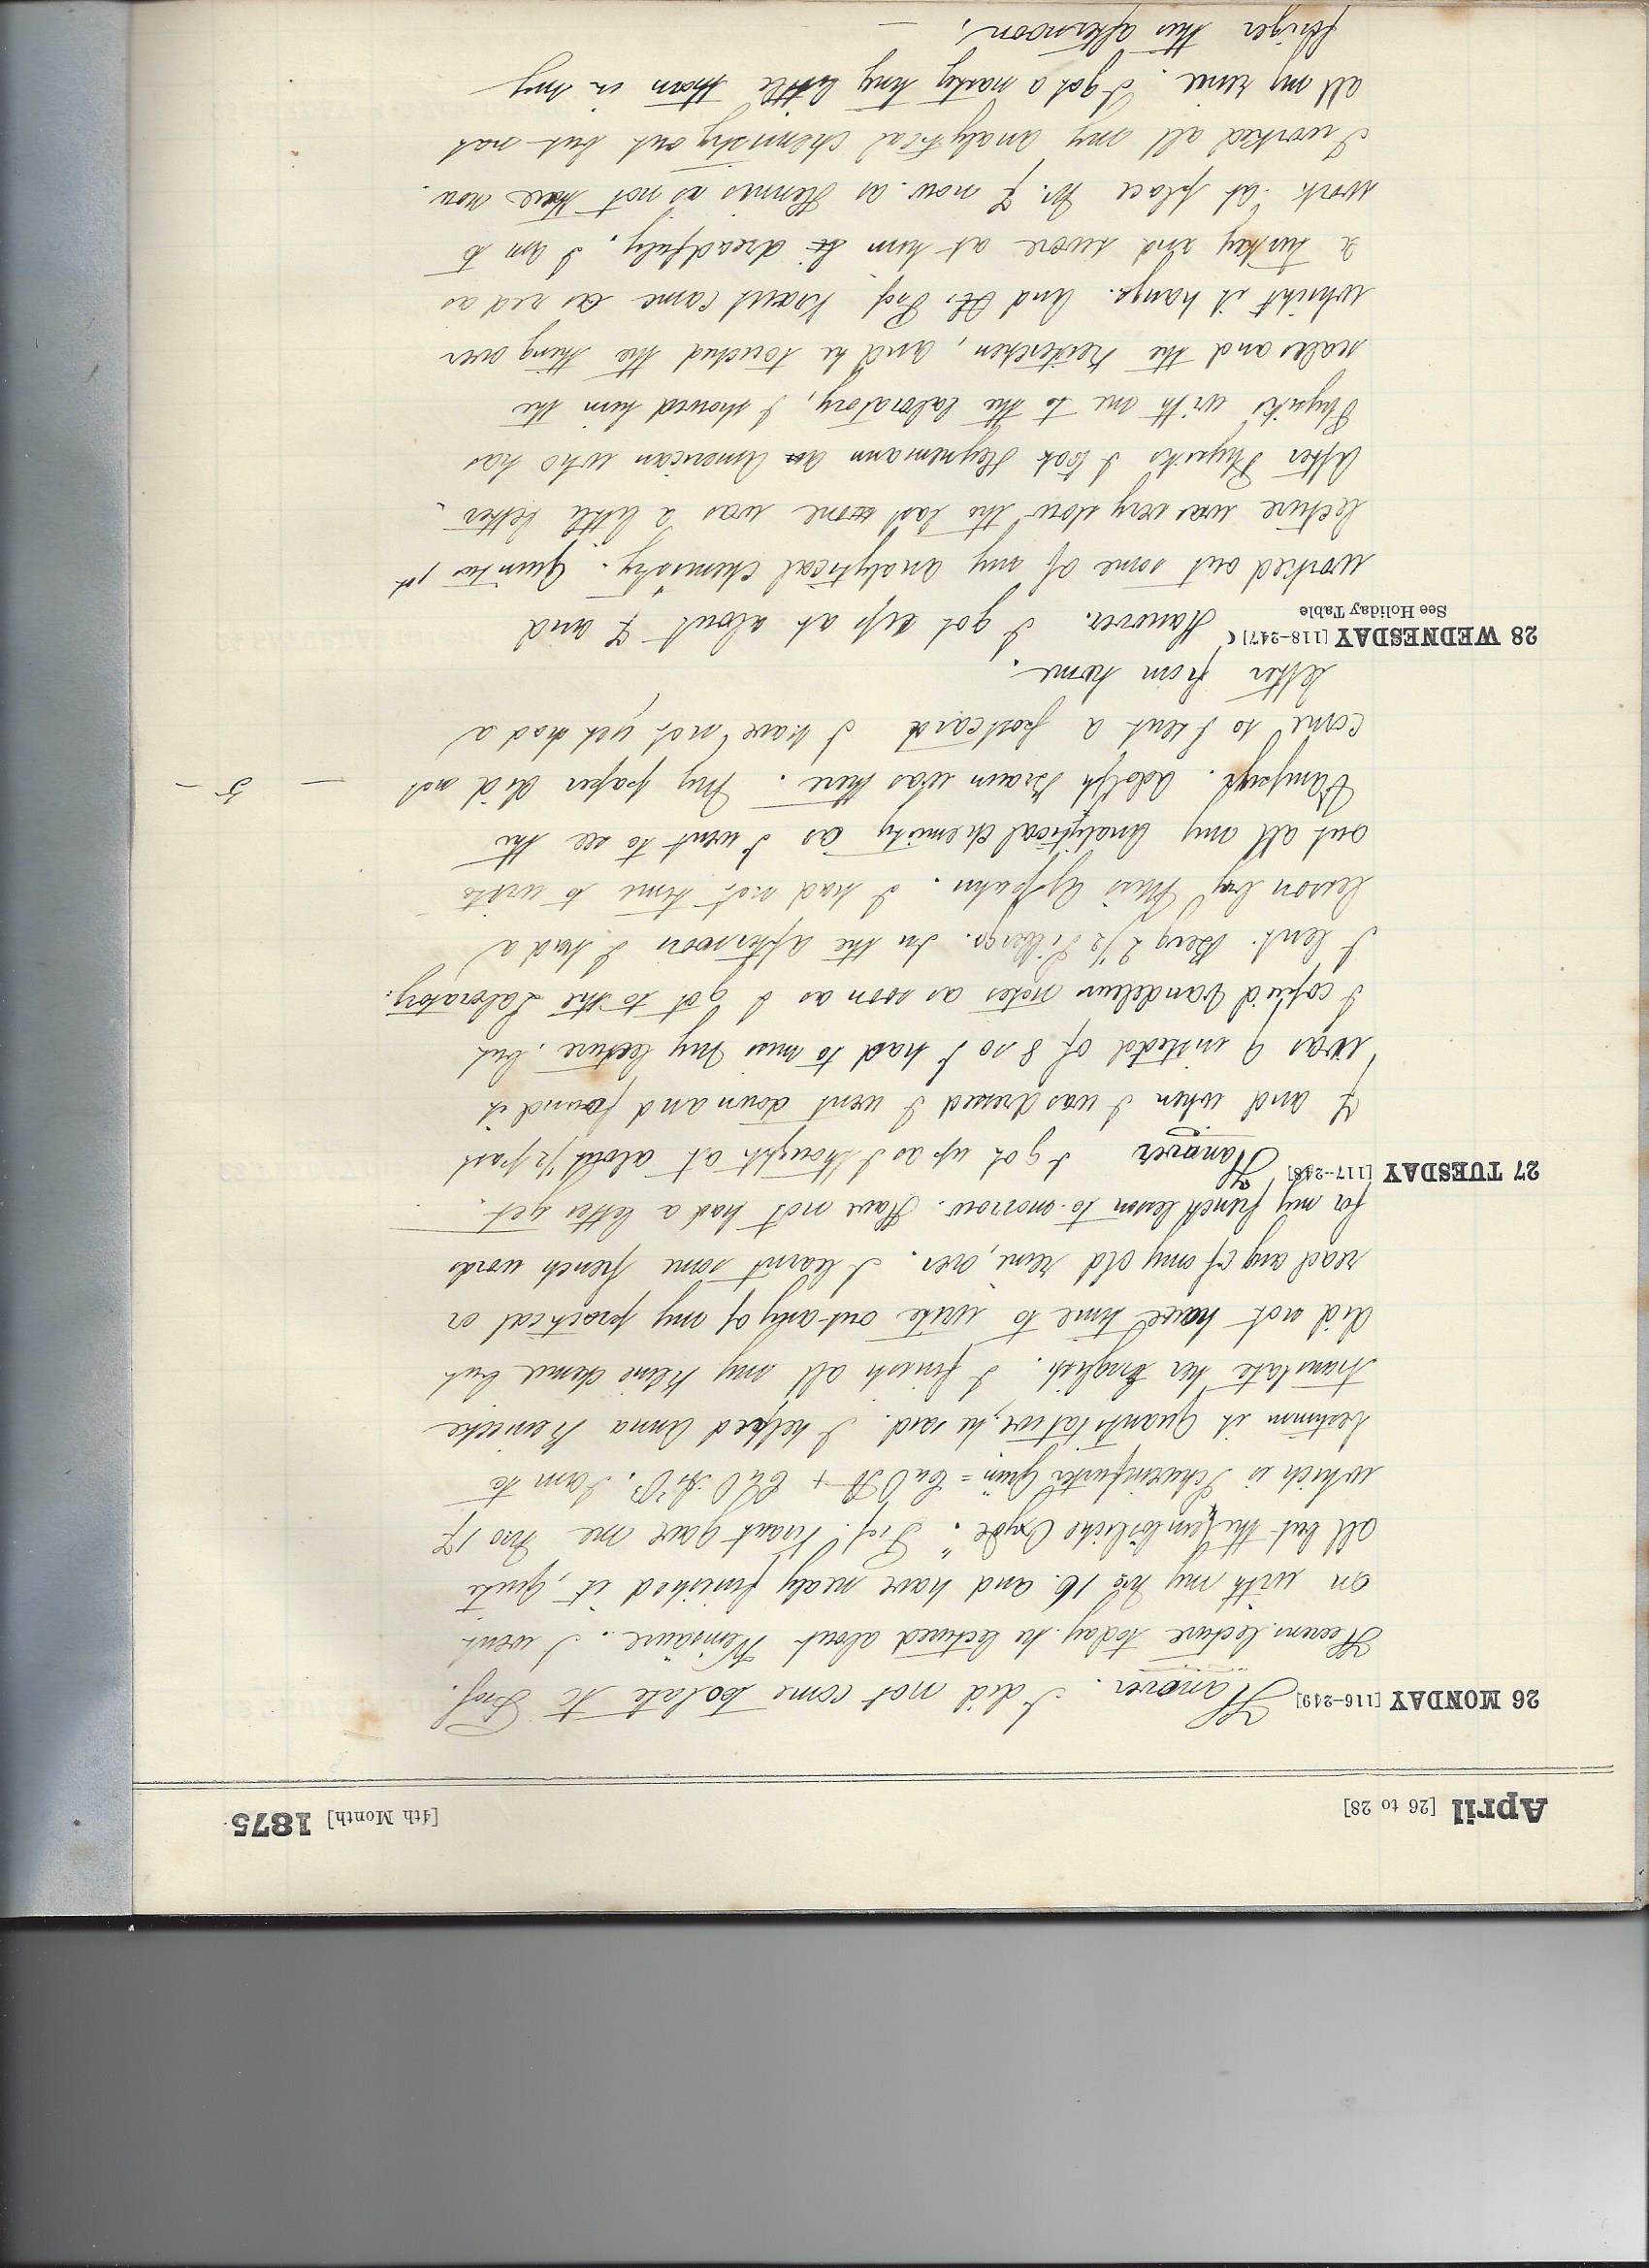 April [26 to 28] [4th Month] 1875.
26 MONDAY [116-249] Hanover. I did not come too late to Prof.
Heerns lecture today. he lectured about Weinsäure. I went
on with my No 16. and have nealy finished it, quite
all but the "unlösliche Oxyde". Prof. Kraut gave me No 17
which is Schweinfurter Grün = CuO + CuO. I am to
bestimm it Quantitative, he said. I helped Anna
translate her English. I finish all my Reine chemie but
did not have time to write out any of my practical or
read any of my old reine, over. I learnt some french words
for my french lesson to-morrow. Have not had a letter yet.
27 TUESDAY [117-248] Hanover I got up as I thought at about 1/2 past
7 and when I was dressed I went down and found it
was 9 instedd of 8 so I had to miss my lecture. but
I copied Vandeleur notes as soon as I got to the Laboratory.
I lent. Berg 2 1/2 Silbergs. In the afternoon I had a
lesson by Miss. I had not time to write
out all my analytical chemistry as I went to see the
Vampyr. Adolph Braun was there. My paper did not — 5 —
come so I sent a postcard I have not yet had a
letter from home.
28 WEDNESDAY [118-247] Hanover. I got up at about 7 and
See Holiday Table
worked out some of my analytical chemistry. 1st
lecture was very slow the last one was a little better.
After Physiks I took Heynemann an American who has
Physiks with me to the laboratory, I showed him the
scales and the Reiterchen, and he touched the thing over
which it hangs. And Prof Kraut came as red as
a turkey and swore at him dreadfuly. I am to
work at place Nr. 7 now. as Hennis is not there now.
I worked all my analytical chemistry out but not
all my reine. I got a nasty tiny little thorn in my
finger this afternoon. —